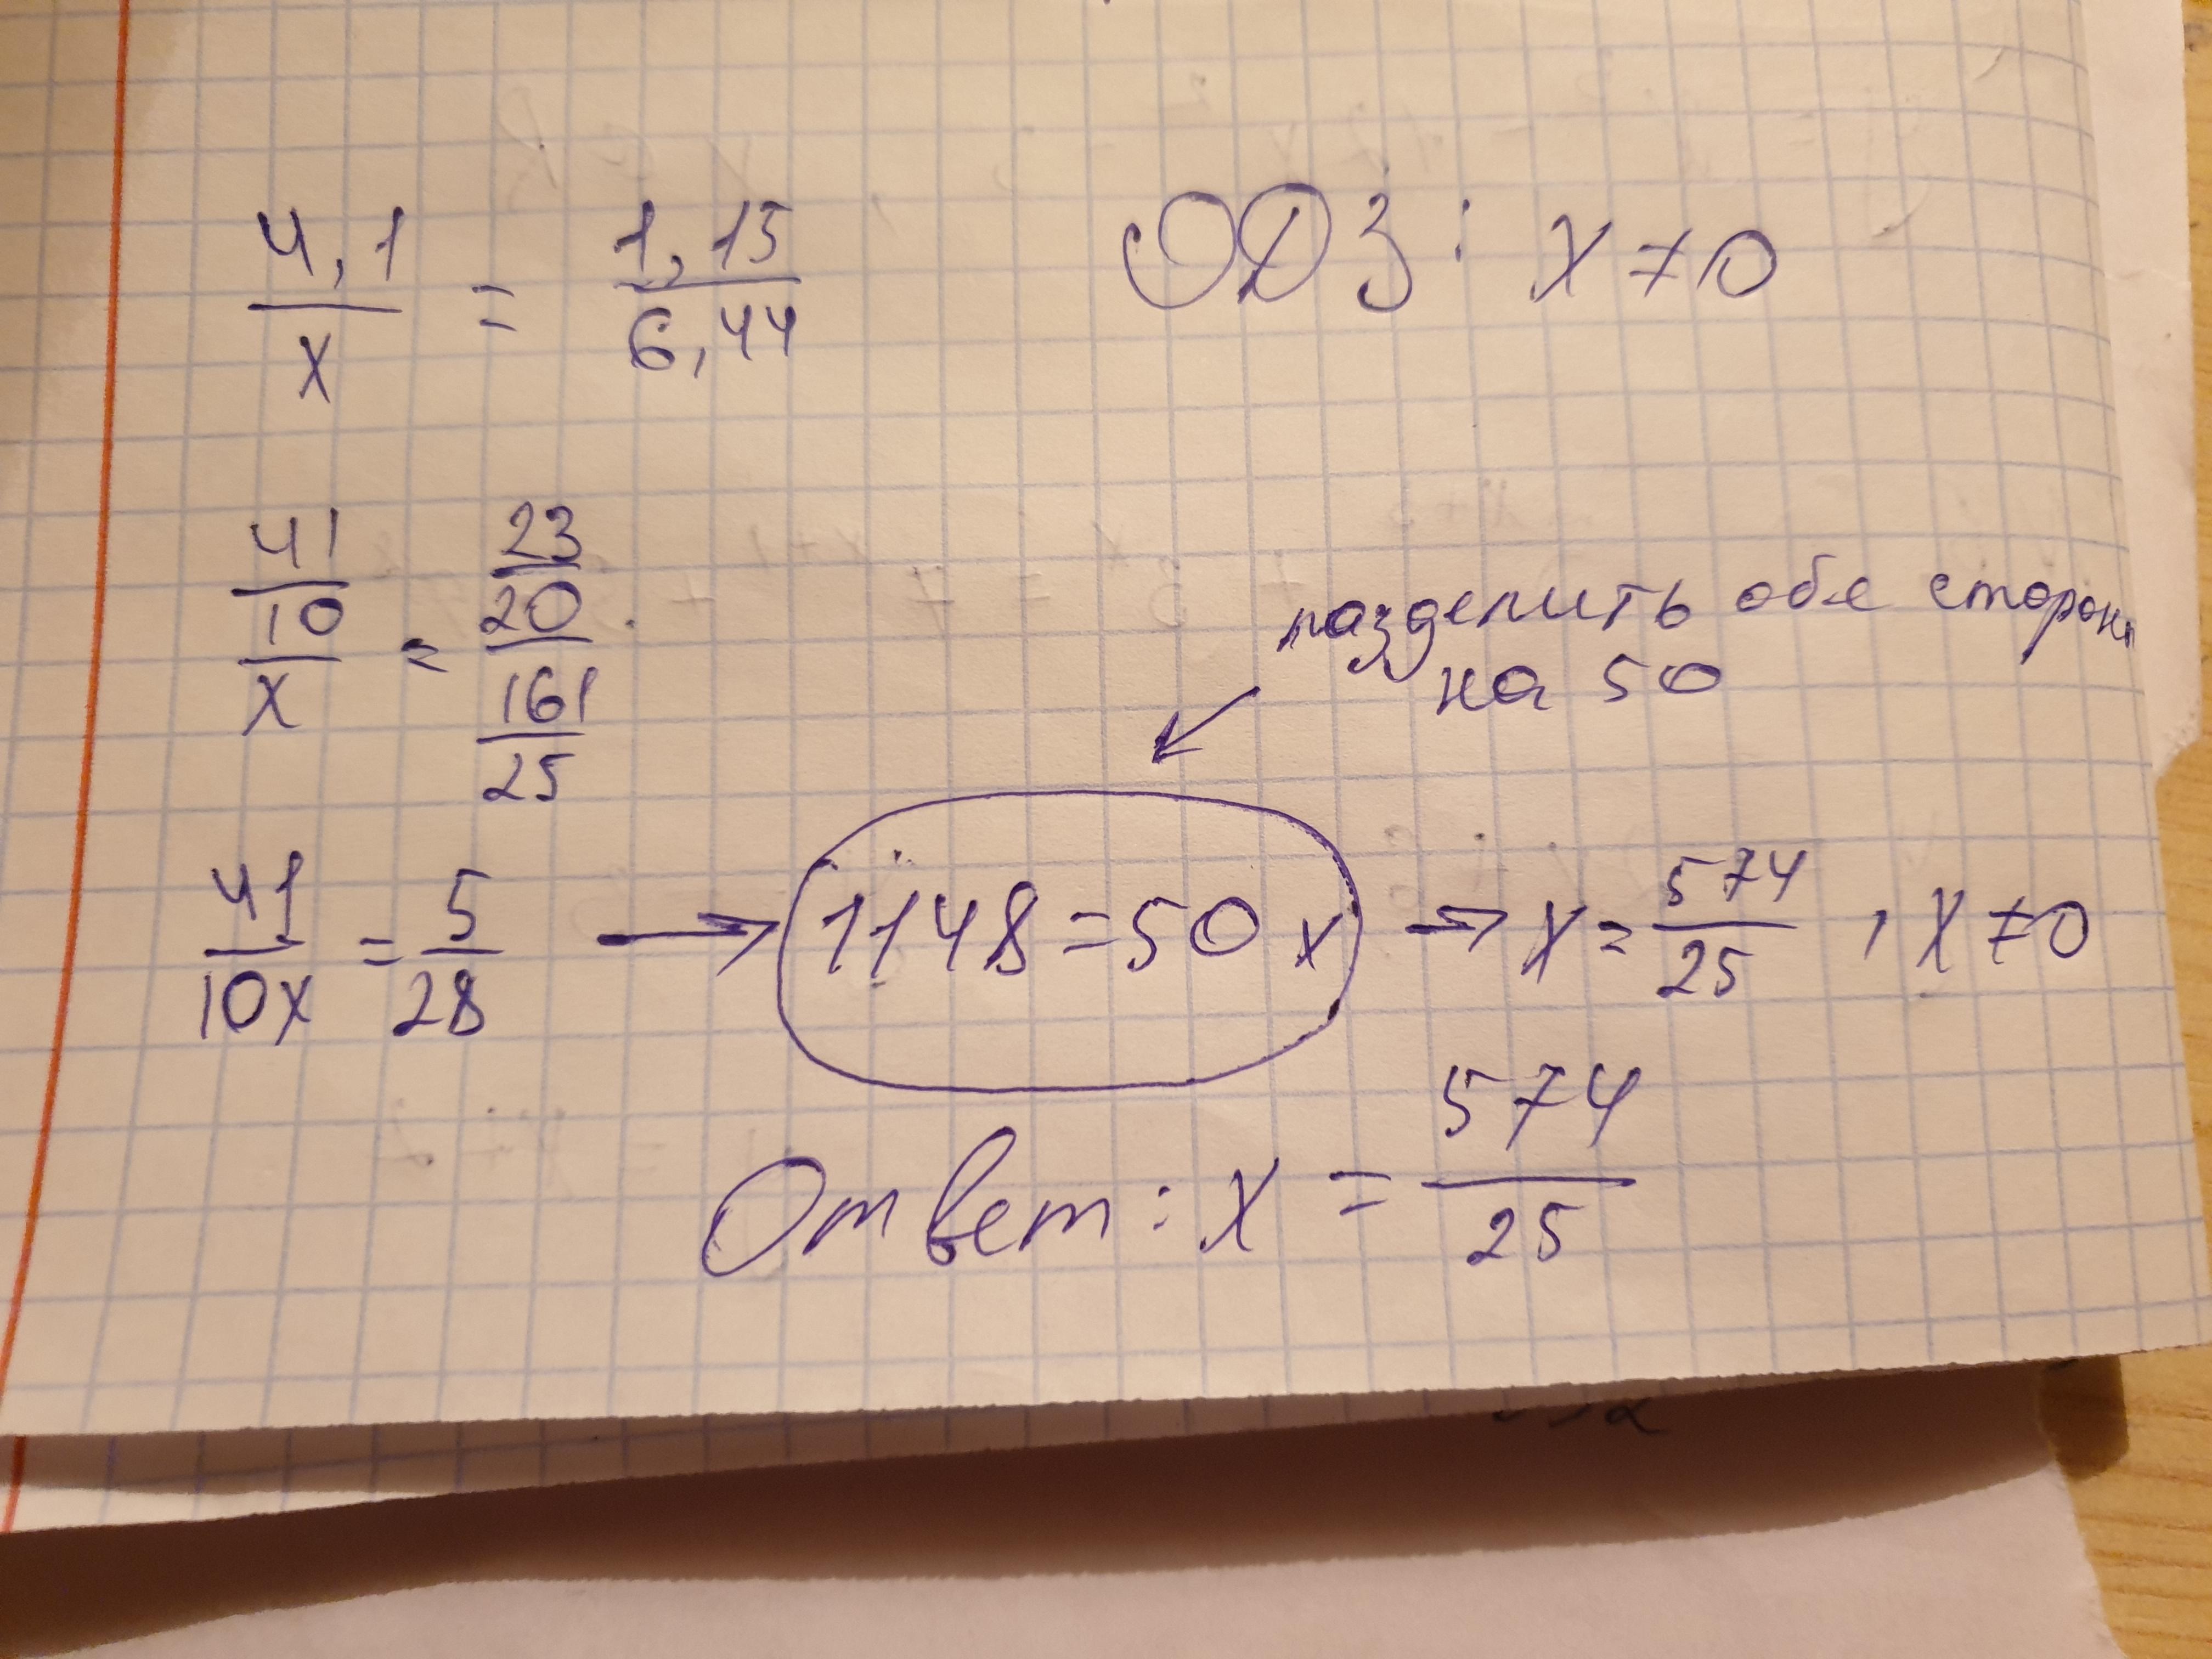 4,1/x = 1,15/6,44 ОДЗ: x ≠ 0
41/10/x = 23/20/161/25
разделить обе стороны
на 50
41/10x = 5/28 → 1148 = 50x → x = 574/25, x ≠ 0
Ответ: x = 574/25